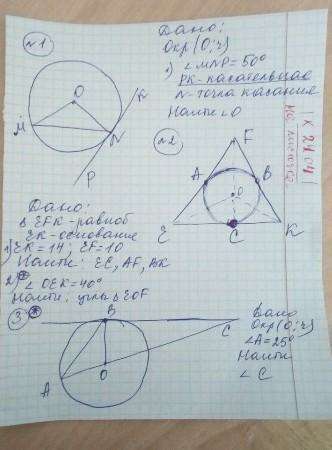 №1
O
M
N
K
P
Дано:
Окр(O; r)
1) ∠MNP = 50°
PK - касательная
N - точка касания
Найти ∠O
К 21.04
На листочке
№2
F
A
B
O
E
C
K
Дано:
Δ EFK - равноб
EK - основание
1) EK = 14; EF = 10
Найти: EC, AF, AK
2)* ∠OEK = 40°
Найти: углы Δ EOF
3*
B
C
A
O
Дано
Окр(O; r)
∠A = 25°
Найти
∠C